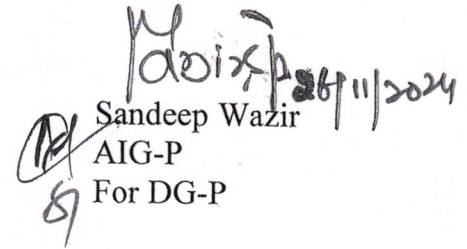 26/11/2024
Sandeep Wazir
AIG-P
For DG-P